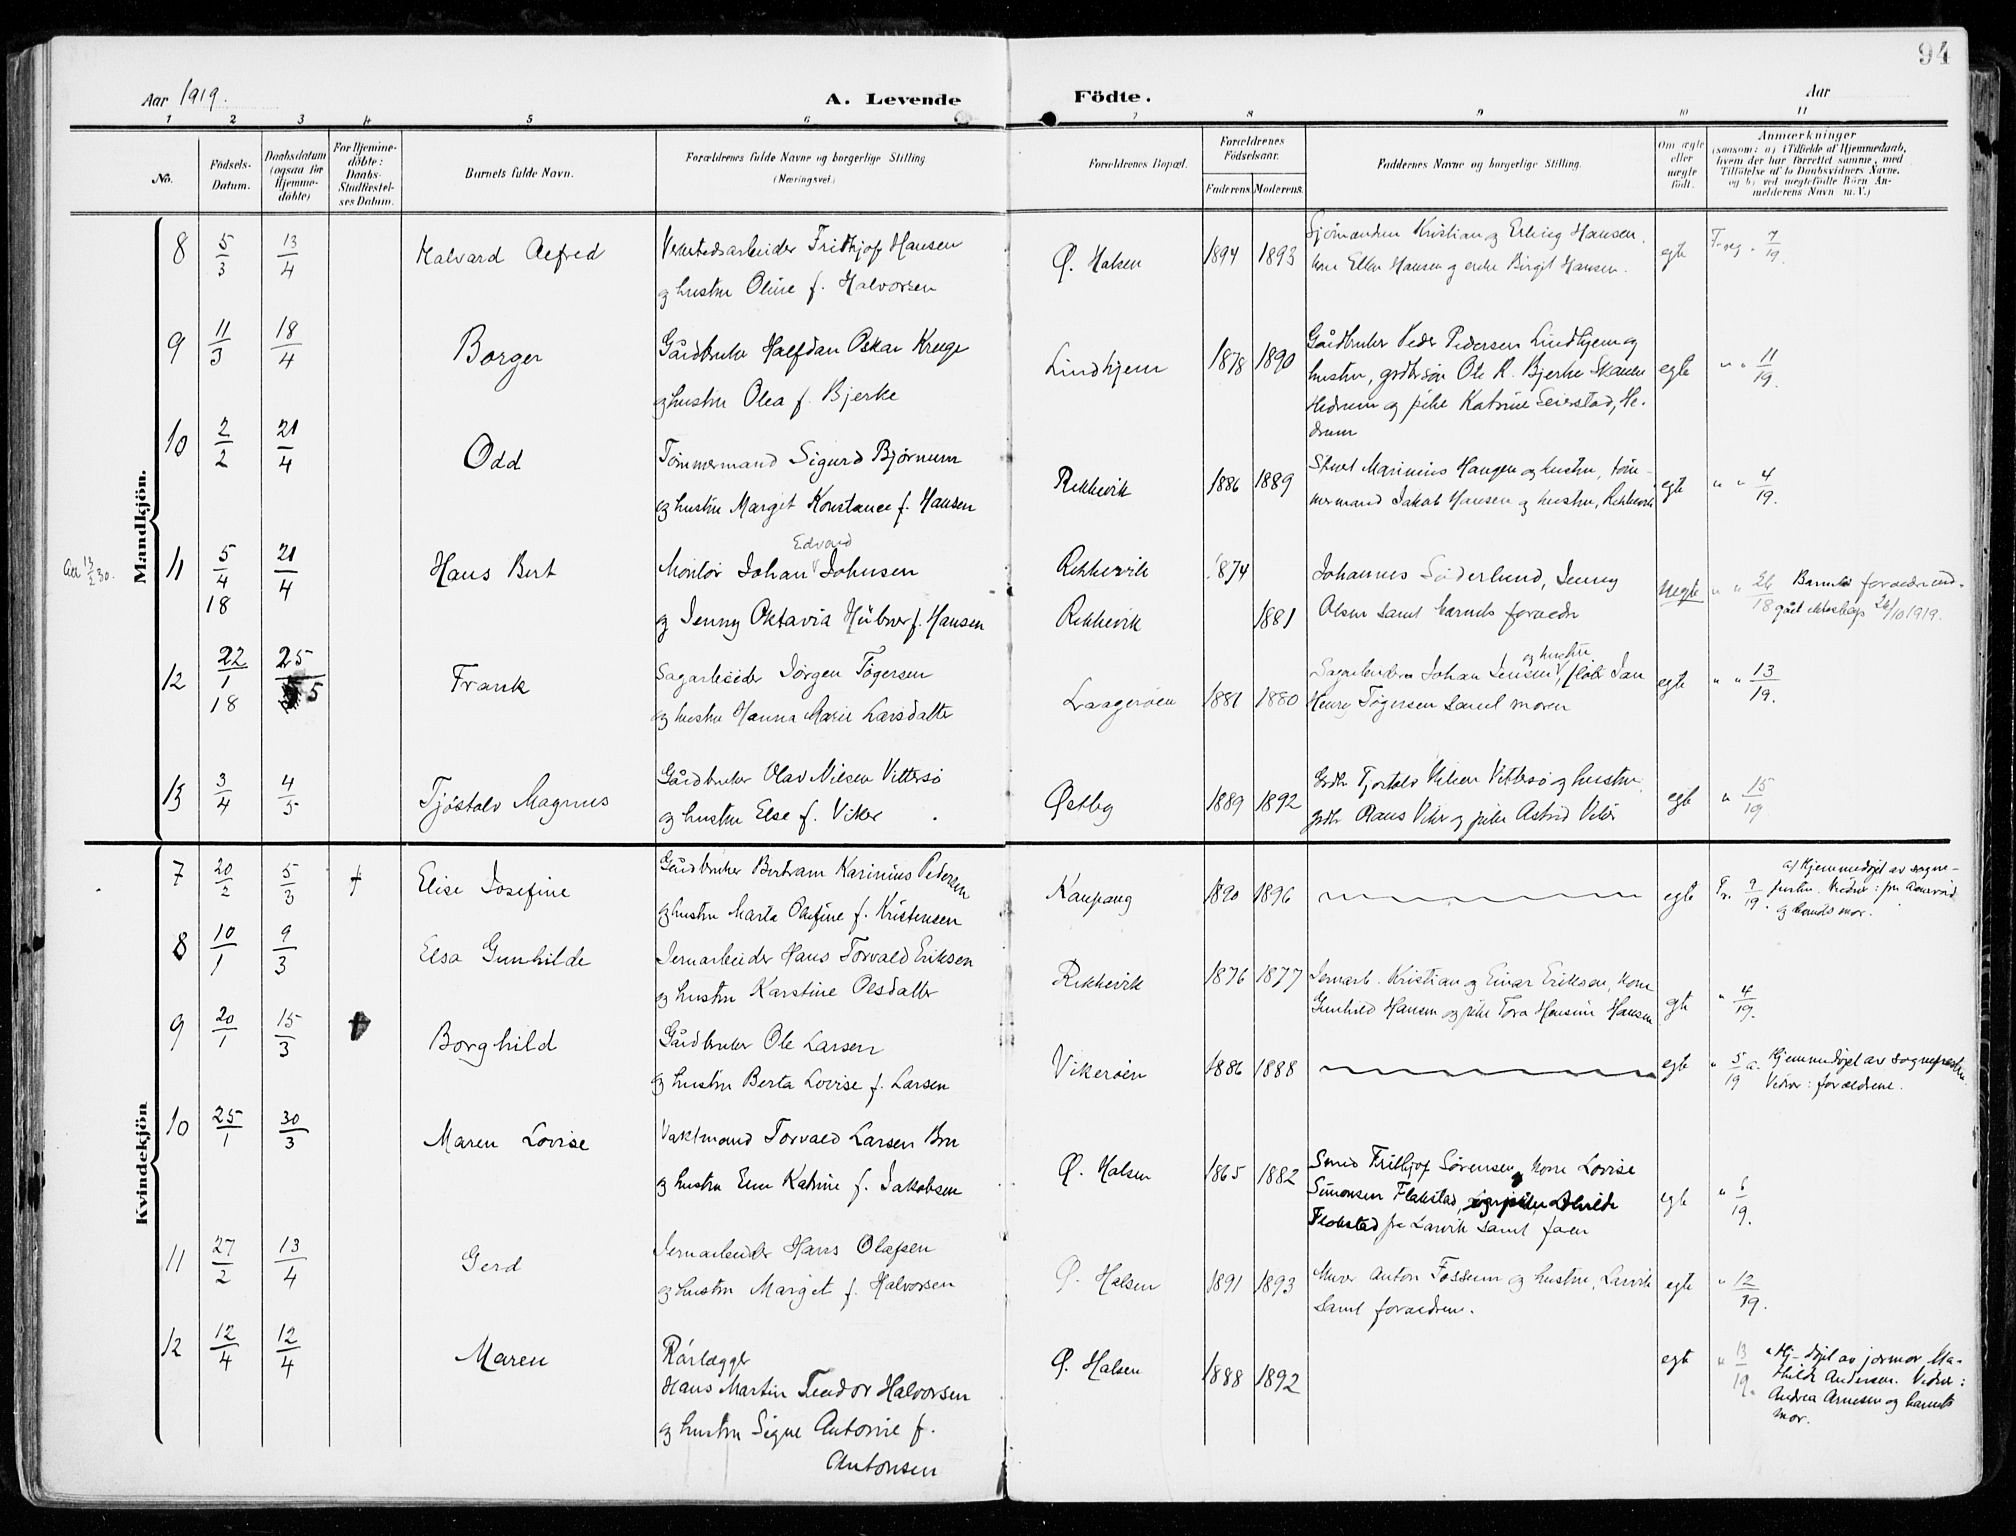 94
Aar 1919.
A. Levende Födte.
Aar
1 2 3 4 5 6 7 8 9 10 11
No.
Födsels-Datum.
Daabsdatum (ogsaa for Hjemme-döbte)
For Hjemme-döbte: Daabs-Stadfæstel-ses Datum.
Barnets fulde Navn.
Forældrenes fulde Navne og borgerlige Stilling
(Næringsvei.)
Forældrenes Bopæl.
Forældrenes Födselsaar.
Faderens. Moderens.
Faddernes Navne og borgerlige Stilling.
Om ægte eller uægte födt.
Anmærkninger
(saasom: a) i Tilfælde af Hjemmedaab,
hvem der har forrettet samme, med
Tilföielse af to Daabsvidners Navne,
og b) ved uægtefödte Börn An-
melderens Navn m. V.)
Mandkjön.
8 5/3 13/4 Halvard Alfred
Verkstedsarbeider Fridthjof Hansen
og hustru Oline f. Halvorsen
Ø. Halsen 1894 1893
Sjømændene Kristian og Erling Hansen,
kone Ellen Hansen og enke Birgit Hansen.
egte 7/19.
9 11/3 18/4 Borger
Gårdbruker Halfdan Oskar Kruge
og hustru Olea f. Bjerke
Lindhjem 1878 1890
Gårdbruker Peder Pedersen Lindhjem og
hustru, grdbrsøn Ole R. Bjerke
Hedrum og pike Katrine Seierstad, He-
drum
egte " " 11/19.
10 2/2 21/4 Odd
Tømmermand Sigurd Bjørnum
og hustru Marget Konstance f. Hansen
Rekkevik 1886 1889
Marinius Haugen og hustru, tøm-
mermand Jakob Hansen og hustru, Rekkevik
egte " " 4/19.
11 5/4 18 21/4 Hans Bert
Edvard
Montør Johan V Johnsen
og Jenny Oktavia Hübner f. Hansen
Rekkevik 1874
Rekkevik 1881
Johannes Söderlund, Jenny
Olsen samt barnets forædre
uegte " " 26/18 Barnets forældre ind-
gået ekteskap 26/10 1919.
12 22/1 18 25/5 Frank
Sagarbeider Jørgen Tøgersen
og hustru Hanna Marie Larsdatter
Laagerøen 1881 1880
og hustru
Sagarbeider Johan Jensen V, Jan
Henry Tøgersen samt moren
egte " " 13/19.
13 3/4 4/5 Tjöstolv Magnus
Gårdbruker Olav Nilsen Vittersø
og hustru Else f. Viker
Østby 1889 1892
Grdbr Tjøstolv Nilsen Vittersø og hustru,
grdbr Claus Viker og pike Astrid Viker
egte " 15/19
Kvindekjön
7 20/2 5/3 † Elise Josefine
Gårdbruker Bertram Karinius Pedersen
og hustru Marta Olefine f. Kristensen
Kaupang 1890 1896
egte 9/19. a) Hjemmedøpt av sogne-
og barnets mor.
8 10/1 9/3 Elsa Gunhilde
Jernarbeider Hans Torvald Eriksen
og hustru Karstine Olsdatter
Rekkevik 1876 1877
Jernarb. Kristian og Einar Eriksen, kone
Gunhild Hansen og pike Tora Hansine Hansen
egte " 4/19.
9 20/1 15/3 † Borghild
Gårdbruker Ole Larsen
og hustru Berta Lovise f. Larsen
Vikerøen 1886 1888
egte " 5/19 a. Hjemmedøpt av sognepresten
Vidner: forældrene.
10 25/1 30/3 Maren Lovise
Vaktmand Torvald Larsen Bru
og hustru Emma Katrine f. Jakobsen
Ø. Halsen 1865 1882
Smed Fritjof Sørensen, kone Lovise
Simonsen Flakstad,
Flakstad fra Larvik samt faren
egte " 6/19.
11 27/2 13/4 Gerd
Jernarbeider Hans Olafsen
og hustru Marget f. Halvorsen
Ø. Halsen 1891 1893
Murer Anton Fossum og hustru, Larvik
samt forældrene.
egte " 12/19.
12 12/4 12/4 Maren
Rörlægger
Hans Martin Teodor Halvorsen
og hustru Signe Antonie f.
Antonsen
Ø. Halsen 1888 1892
egte " 13/19. Hj-døpt av jormor Ma-
thilde Andersen. Vidner:
Andrea Arnesen og barnets
mor.